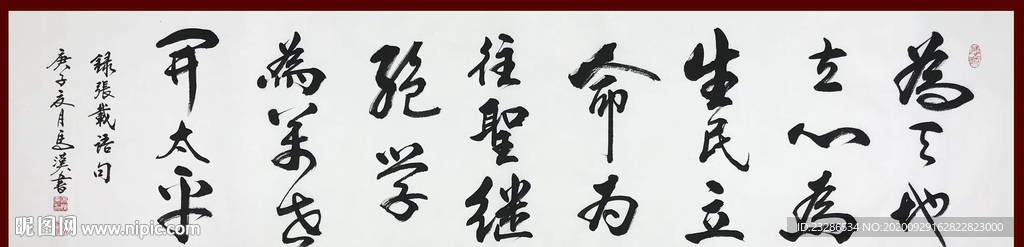 為天地
立心為
生民立
命为
往聖继
绝学
為萬世
開太平
録張載语句
庚子夏月馬漢書
昵图网
www.nipic.com
ID:23286334 NO:20200929162822823000